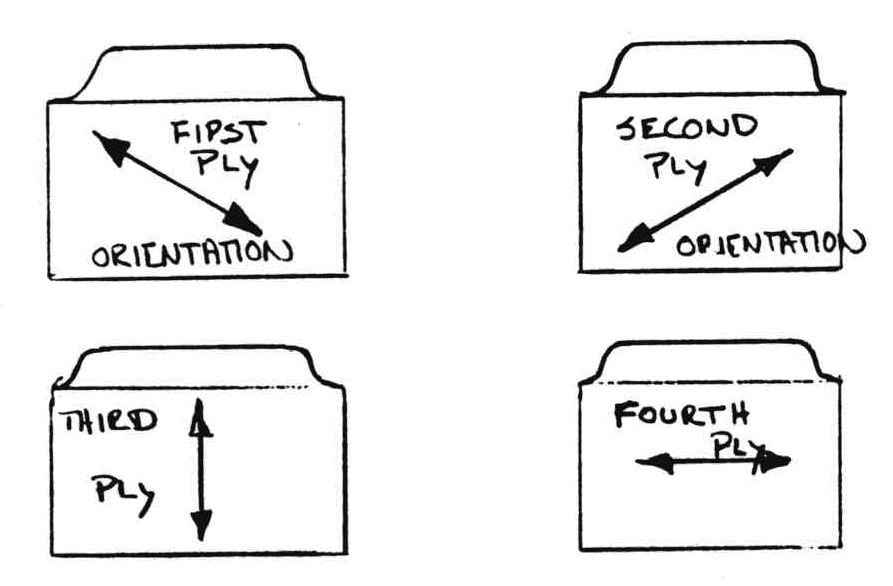 FIRST
PLY
ORIENTATION
SECOND
PLY
ORIENTATION
THIRD
PLY
FOURTH
PLY